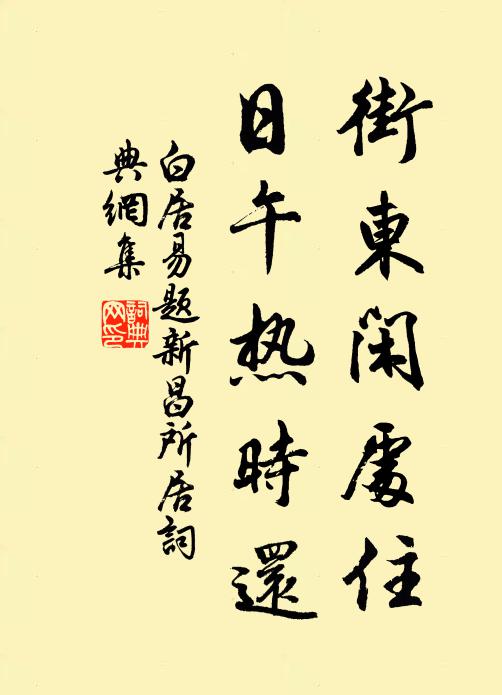 街東閑處住
日午热時還
白居易題新昌所居詞
典網集
詞典网印